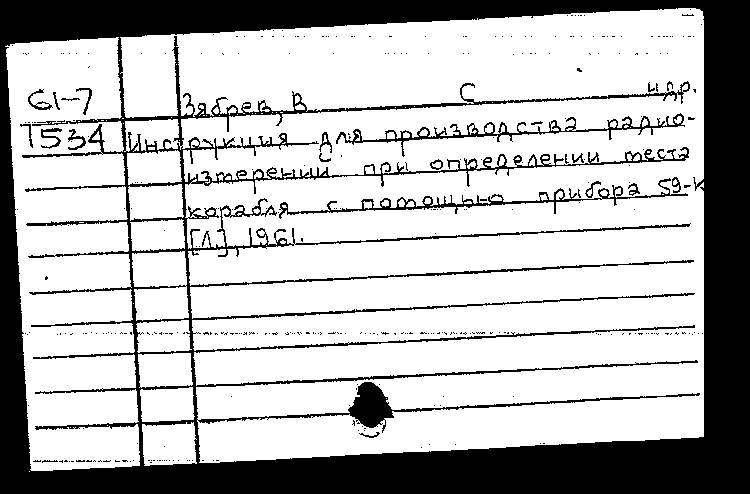 61-7 Зябрев, В С идр.
1534 Инструкция для производства радио-
изтерений при определении теста
корабля с потощью прибора 59-К
[Л.], 1961.